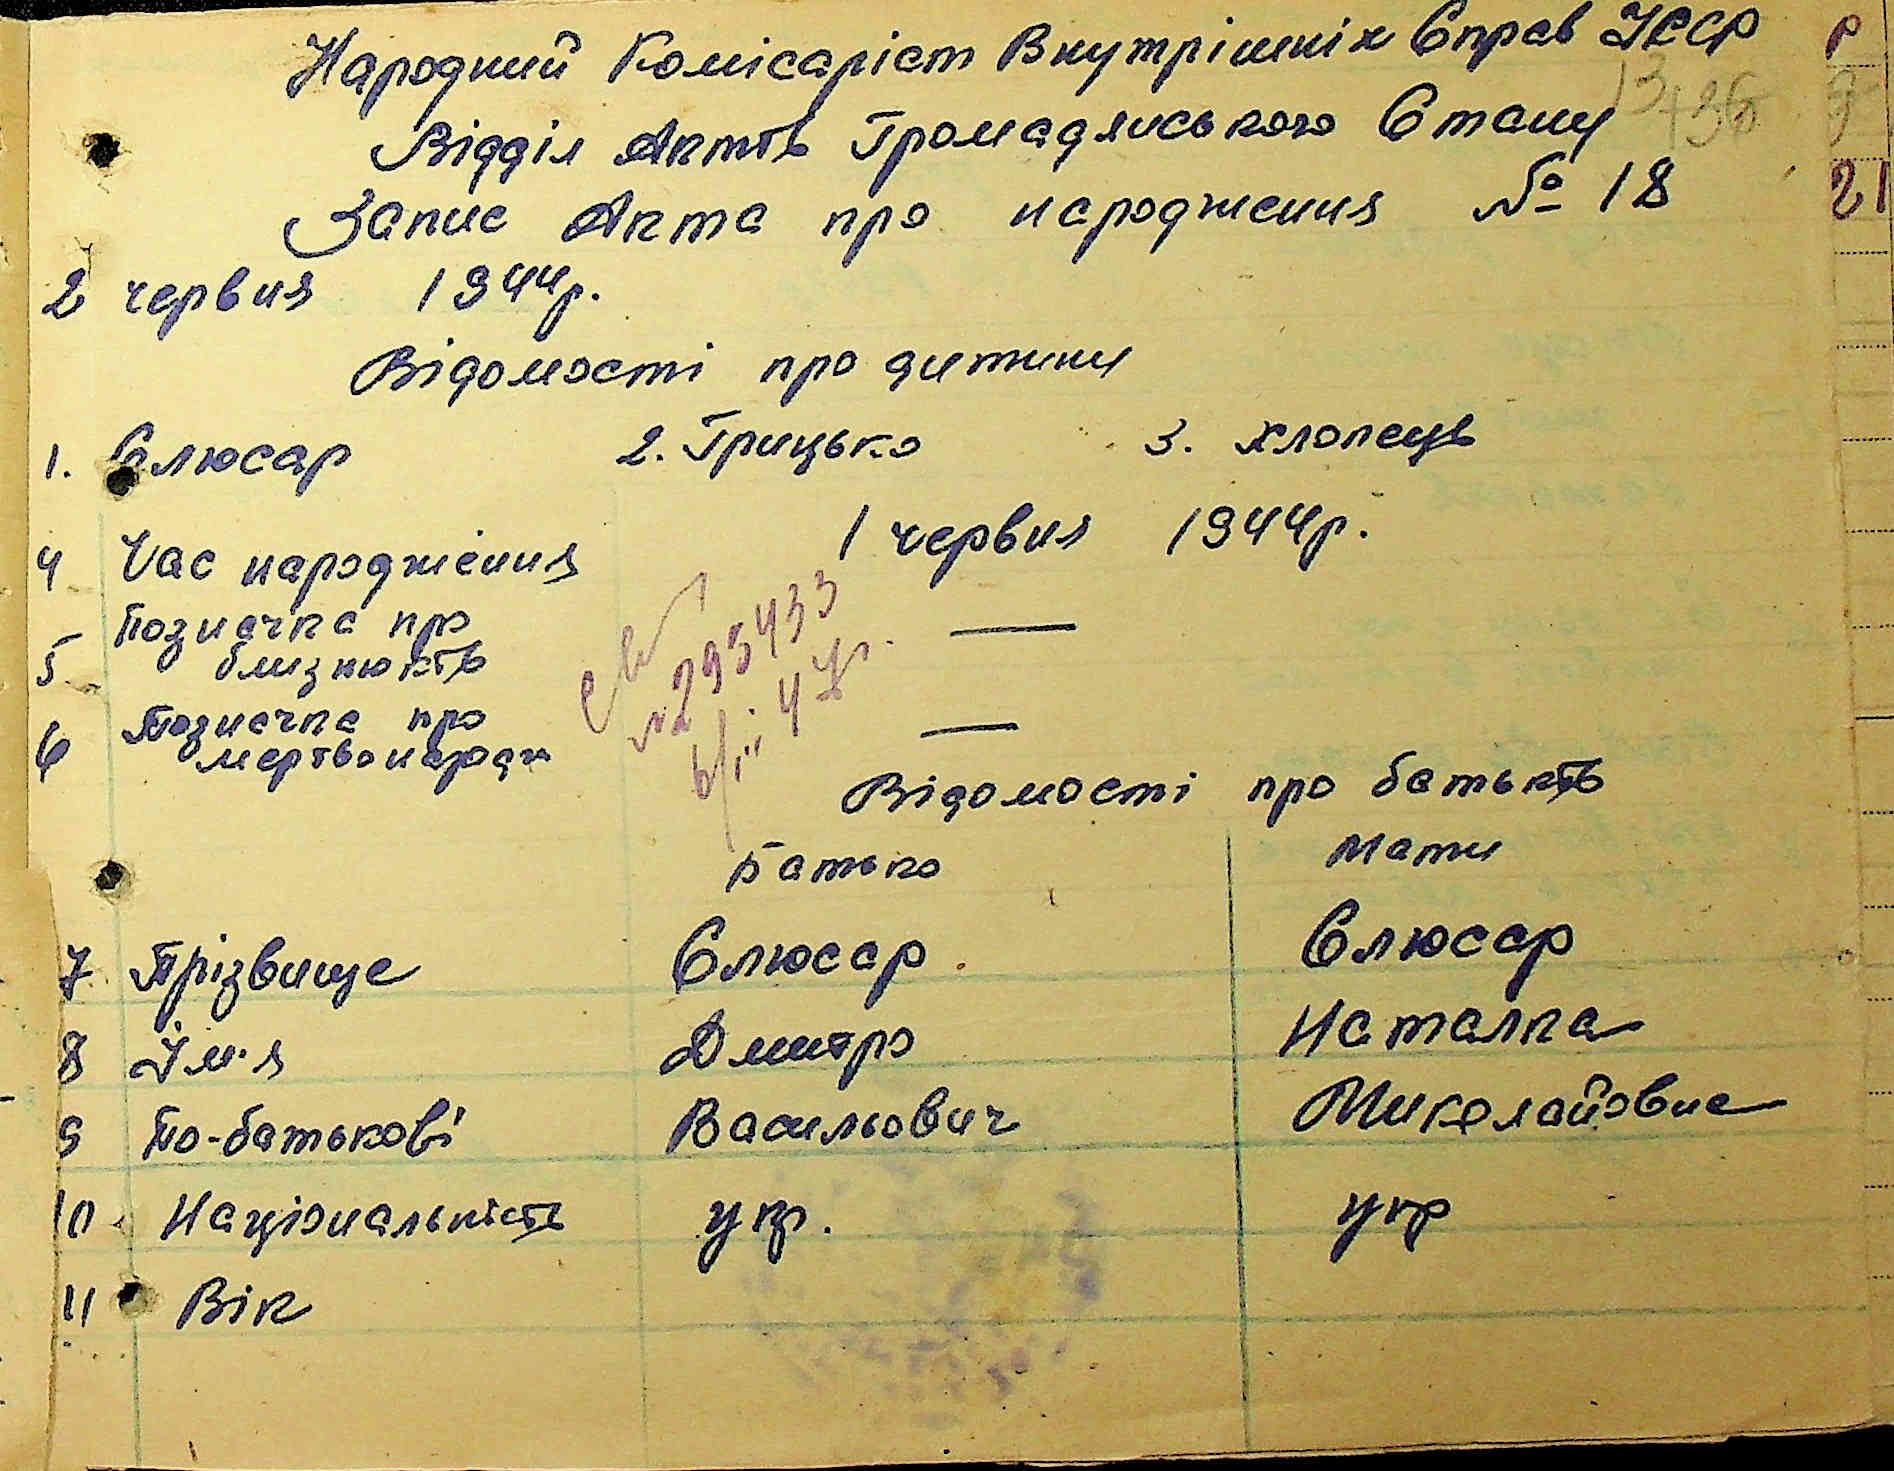 Народний Комісаріят Внутрішніх Справ УССР
13
136
Відділ Актів Громадянського Стану
Запис Акта про народження № 18
2 червня 1944р.
Відомості про дитину
1. Слюсар 2. Грицько 3. хлопець
4 Час народження 1 червня 1944р.
5 Позначка про
близнюків —
6 Позначка про
мертвонародж —
№ 295433
Відомості про батьків
Батько Мати
7 Прізвище Слюсар Слюсар
8 Їм'я Дмитро Наталка
9 По-батькові Васильович Миколайовна
10 Національність укр. укр
11 Вік
21